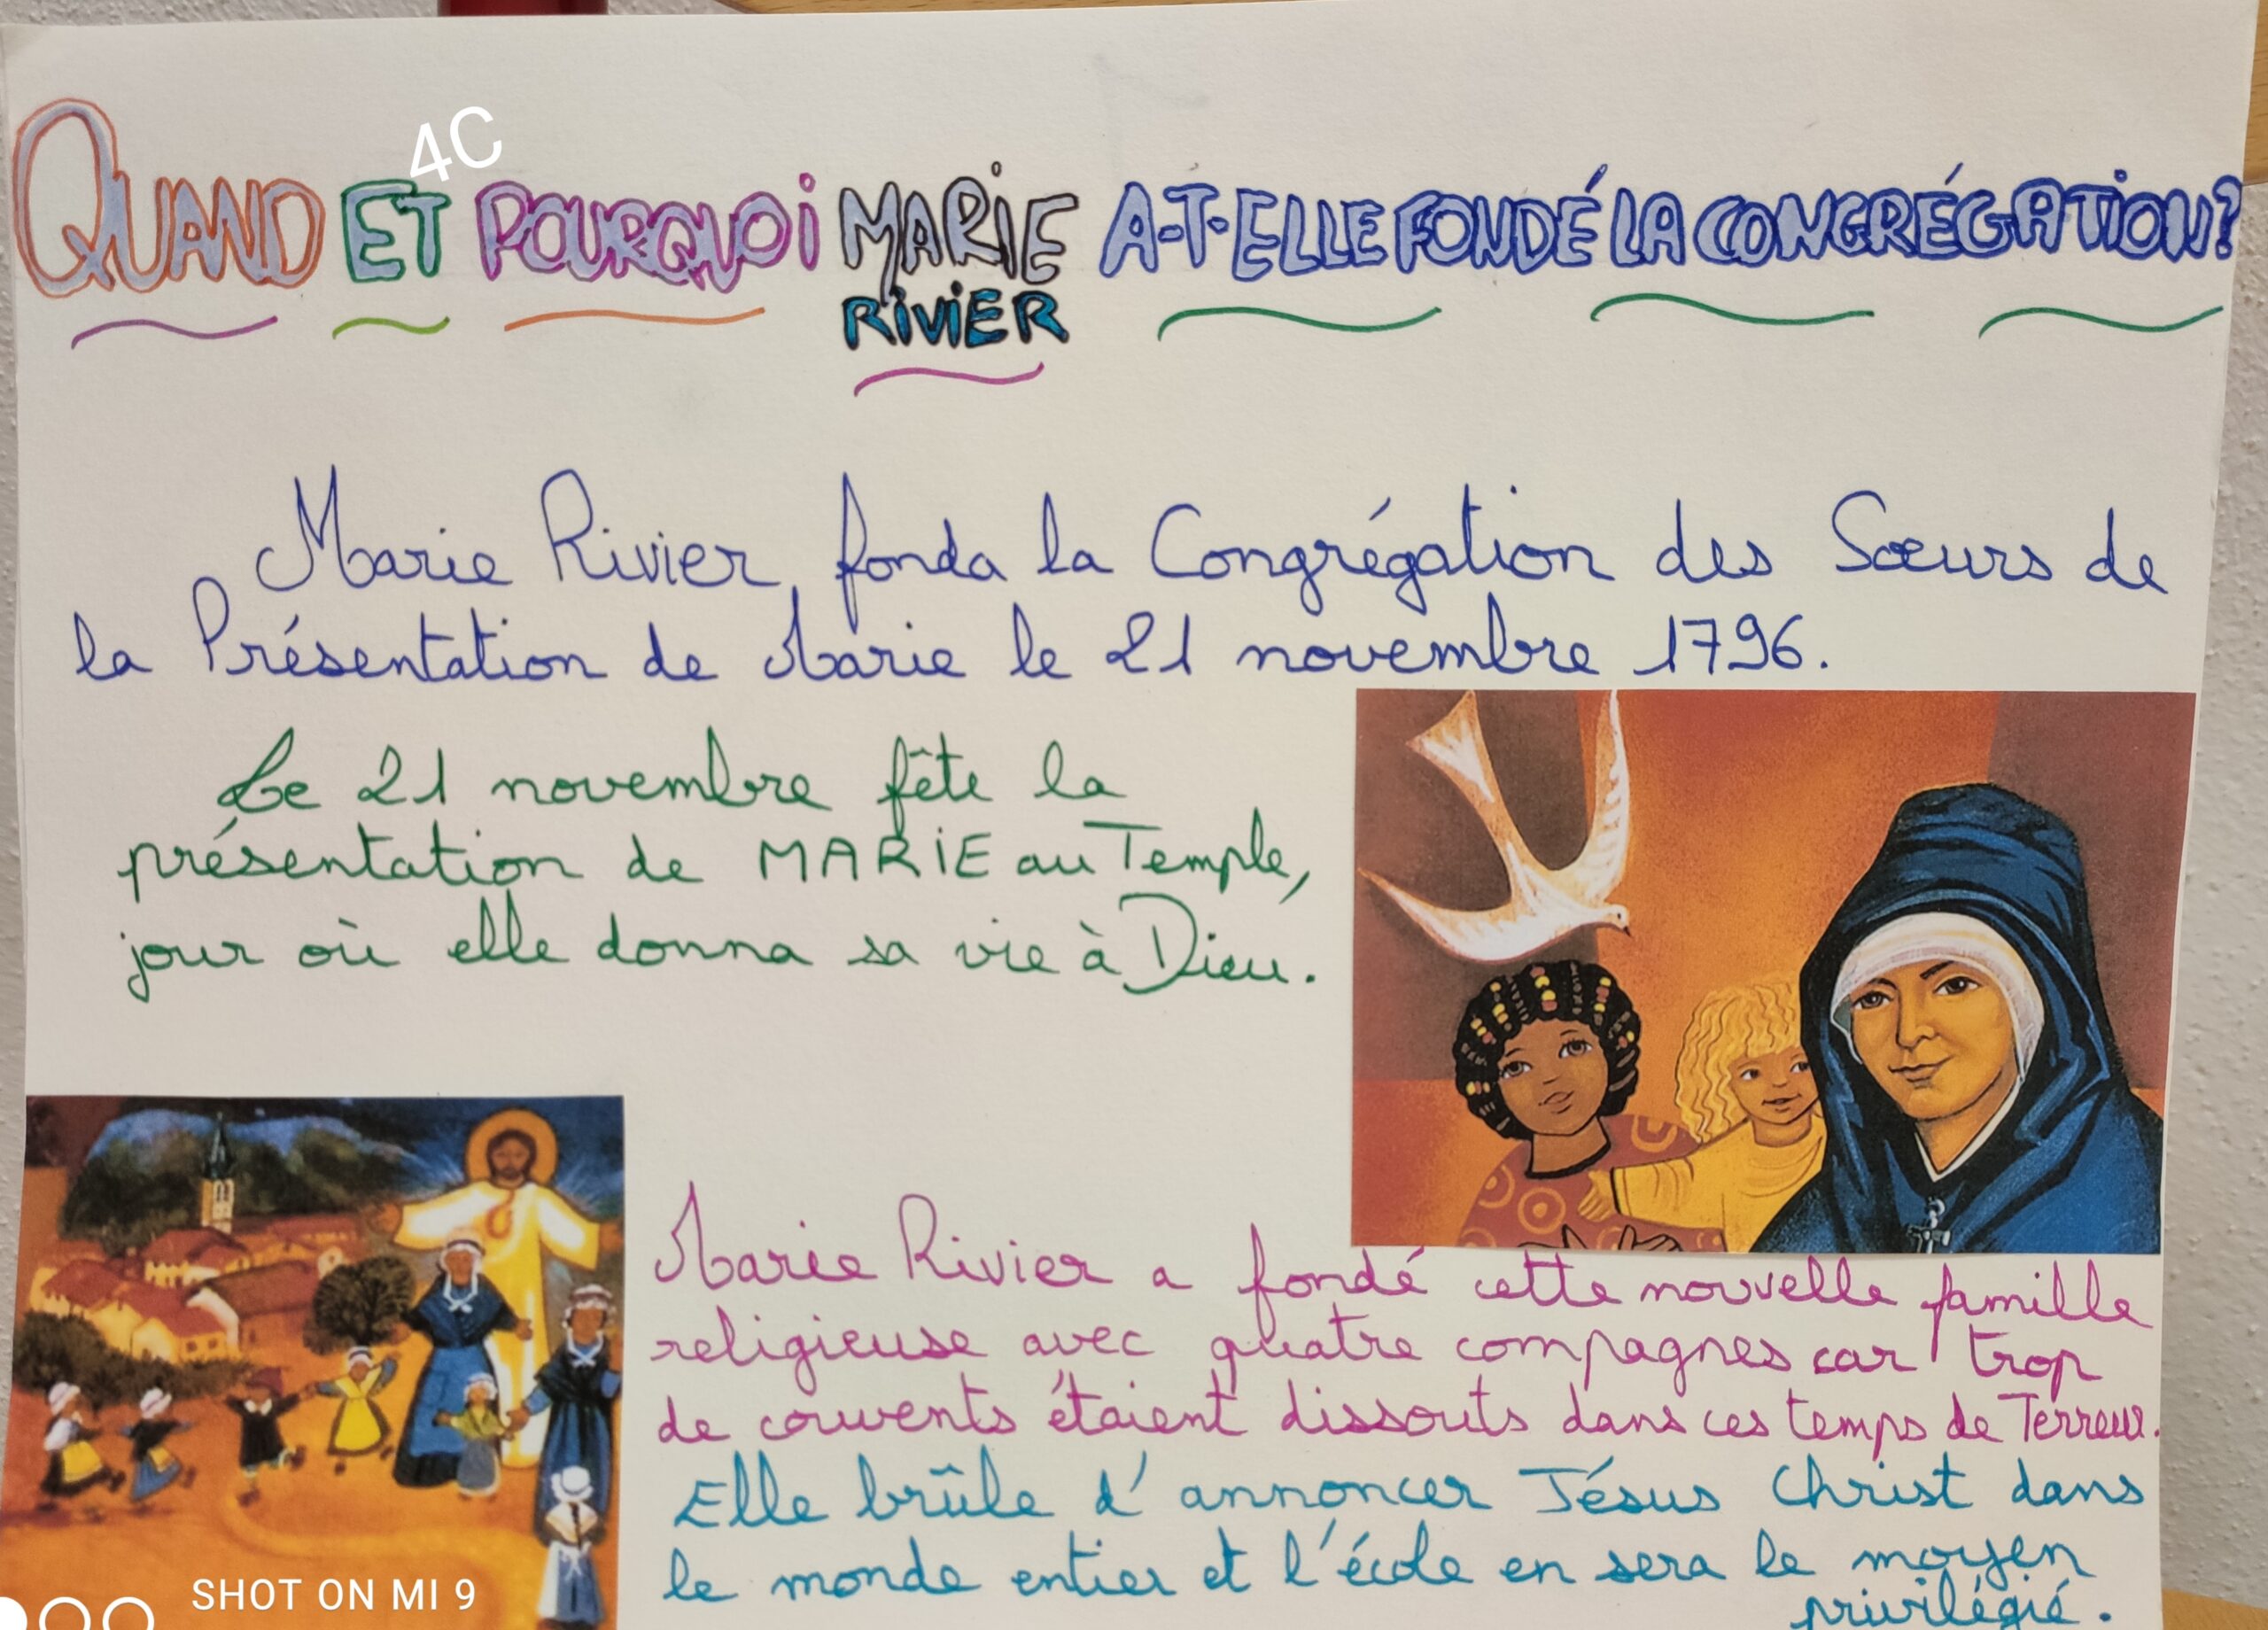 4C
QUAND ET POURQUOI MARIE A-T-ELLE FONDÉ LA CONGRÉGATION?
RIVIER
Marie Rivier fonda la Congrégation des Sœurs de
la Présentation de Marie le 21 novembre 1796.
Le 21 novembre fête la
présentation de MARIE au Temple,
jour où elle donna sa vie à Dieu.
Marie Rivier a fondé cette nouvelle famille
religieuse avec quatre compagnes car trop
de couvents étaient dissouts dans ces temps de Terreur.
Elle brûle d'annoncer Jésus Christ dans
le monde entier et l'école en sera le moyen
privilégié.
SHOT ON MI 9